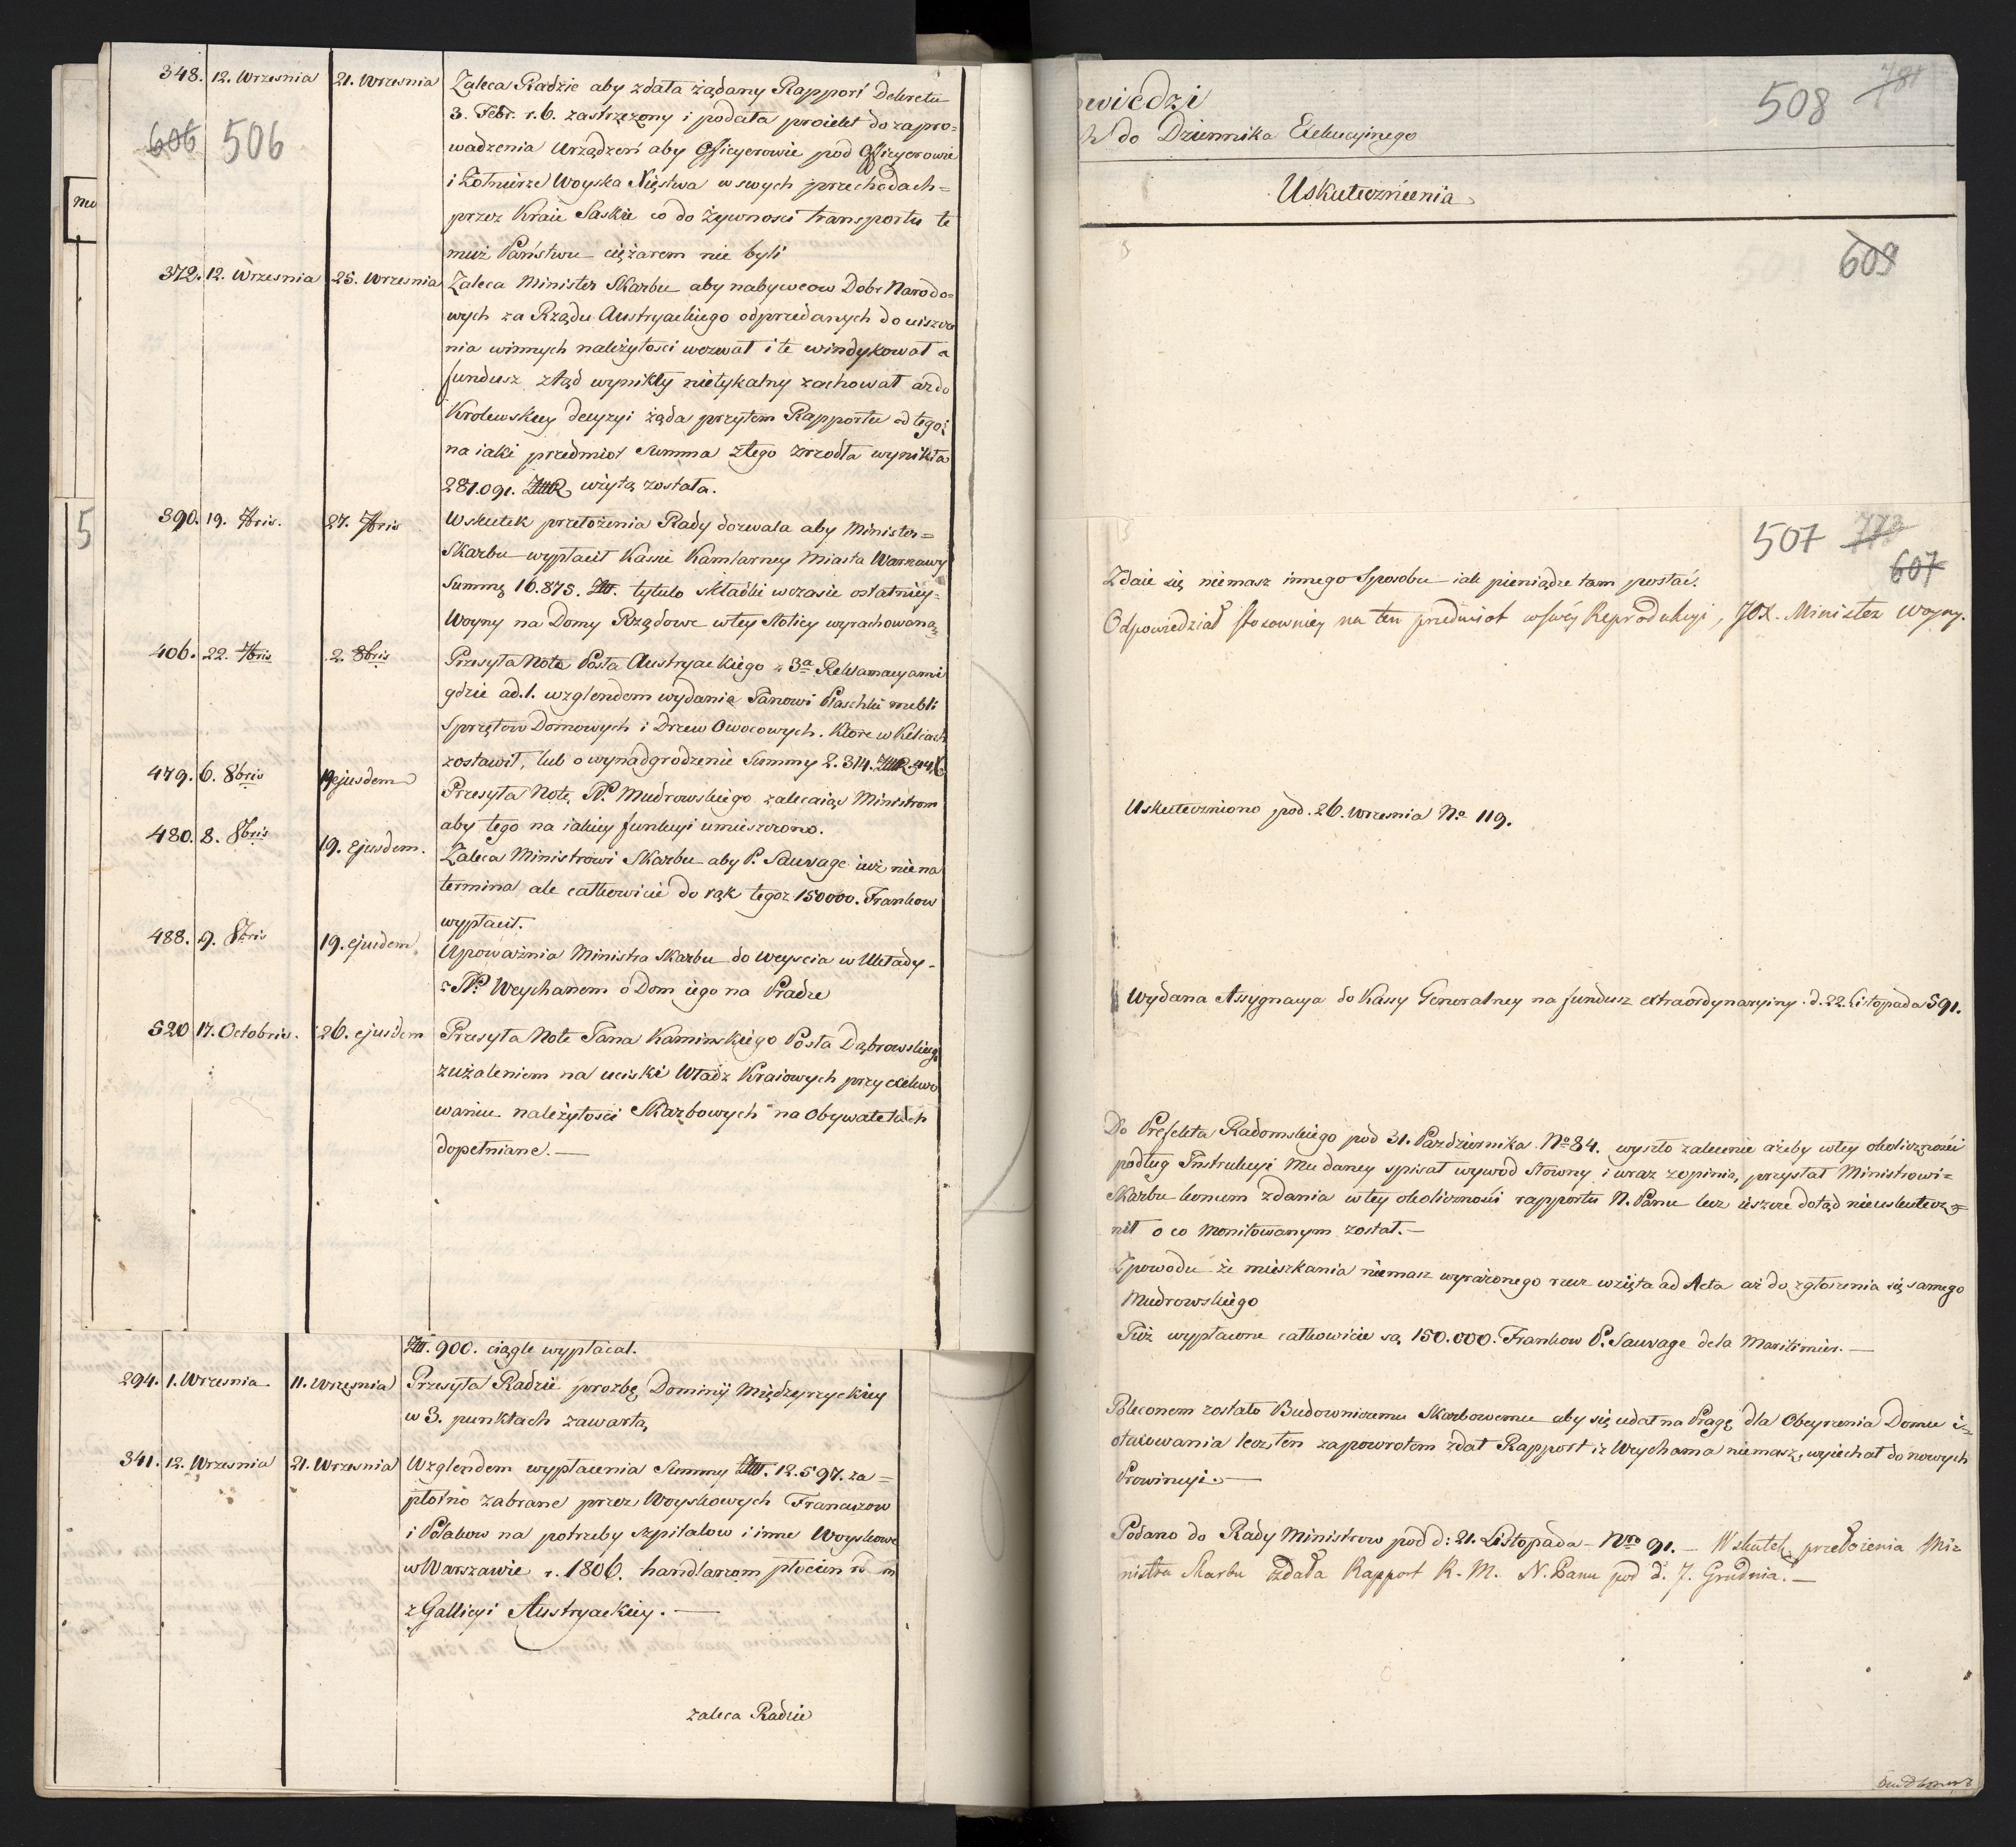 348. 12. Wrzesnia 21. Wrzesnia Zaleca Radzie aby zdała żądany Rapport Dekretu
606 506 3. Febr. r. b. zastrzeżony i podała proiekt do zapro=
wadzenia Urządzeń aby Officyerowie pod Officyerowie
i Żołnierze Woyska Xięstwa w swych przechodach=
przez Kraie Saskie co do żywnosci transportu te
muż Państwu ciężarem nie byli
372. 12. Wrzesnia 25. Wrzesnia Zaleca Minister Skarbu aby nabywcow Dobr Narodo=
wych za Rządu Austryackiego odprzedanych do uiszcze
nia winnych należytosci wezwał i te windykował a
fundusz ztąd wynikły nietykalny zachował aż do
Krolewskiey decyzyi żąda przytem Rapportu od tegoż
na iaki przedmiot Summa ztego zrzodła wynikła
281.091. użytą została.
390. 19. 7bris. 27. 7bris Wskutek przełożenia Rady dozwala aby Minister=
Skarbu wypłacił Kassie Kamlarney Miasta Warszawy
Summę 16.875. tytułu składki wczasie ostatniey=
Woyny na Domy Rządowe wtey Stolicy wyrachowaną
406. 22. 7bris 2. 8bris Przesyła Notę Posła Austryackiego z 3a Reklamacyami
gdzie ad. 1. wzglendem wydania Panowi Plaschki mebli
Sprzętow Domowych i Drzew Owocowych. Ktore w Kielcach
zostawił, lub o wynadgrodzenie Summy 2.314.
479. 6. 8bris 19 ejusdem Przesyła Notę, JP. Mudrowskiego zalecaiąc Ministrom
aby tego na iakiey funkcyi umieszczono.
480. 8. 8bris 19. ejusdem. Zaleca Ministrowi Skarbu aby P. Sauvage iuż nie na
termina ale całkowicie do rąk tegoz 150000. Frankow
wypłacił.
488. 9. 8bris 19. ejusdem Upoważnia Ministra Skarbu do weyscia w Układy-
z JP. Weychanem o Dom iego na Pradze
520 17. Octobris. 26. ejusdem Przesyła Notę Pana Kaminskiego Posła Dąbrowskiego
zużaleniem na uciski Władz Kraiowych przy exekwo
waniu należytosci Skarbowych na Obywatelach
dopełniane.—
5
900. ciągle wypłacał.
294. 1. Wrzesnia 11. Wrzesnia Przesyła Radzie prozbę Dominij Międzyrzyckiey
w 3. punktach zawartą
341. 12. Wrzesnia 21. Wrzesnia Wzglendem wypłacenia Summy 12.597. za=
płotno zabrane przez Woyskowych Francuzow
i Polakow na potrzeby szpitalow i inne Woyskowe
w Warszawie r. 1806. handlarzom płocien
z Gallicyi Austryackiey.—
zaleca Radzie
wiedzi 508 781
do Dziennika Exekucyinego
Uskutecznienia
609
507 773
607
Zdaie się niemasz innego Sposobu iak pieniądze tam posłać.
Odpowiedział stosowniey na ten przedmiot w swéy Reprodukcyi, JOX. Minister Woyny.
Uskuteczniono pod. 26. Wrzesnia No 119.
Wydana Assygnacya do Kassy Generalney na fundusz extraordynaryiny. d. 22. Listopada 591.
Do Prefekta Radomskiego pod 31. Pazdziernika No 84. wyszło zalecenie ażeby wtey okoliczności
podług Instrukcyi Mu daney spisał wywod słowny i wraz zopinią przysłał Ministrowi=
Skarbu końcem zdania wtey okoliczności rapportu N. Panu lecz ieszcze dotąd nieuskutecz=
nił o co monitowanym został.—
Z powodu że mieszkania niemasz wyrażonego rzecz wzięta ad Acta aż do zgłoszenia się samego
Mudrowskiego
Już wypłacone całkowicie są 150.000. Frankow P. Sauvage dela Maritimier.—
Poleconem zostało Budowniczemu Skarbowemu aby się udał na Pragę dla Obeyrzenia Domu i=
otaxowania lecz ten zapowrotem zdał Rapport iż Weychana niemasz, wyiechał do nowych
Prowincyi.—
Podano do Rady Ministrow pod d: 21. Listopada- Nro 91.- Wskutek przełożenia Mi=
nistra Skarbu zdała Rapport R. M. N. Panu pod d. 7. Grudnia.—